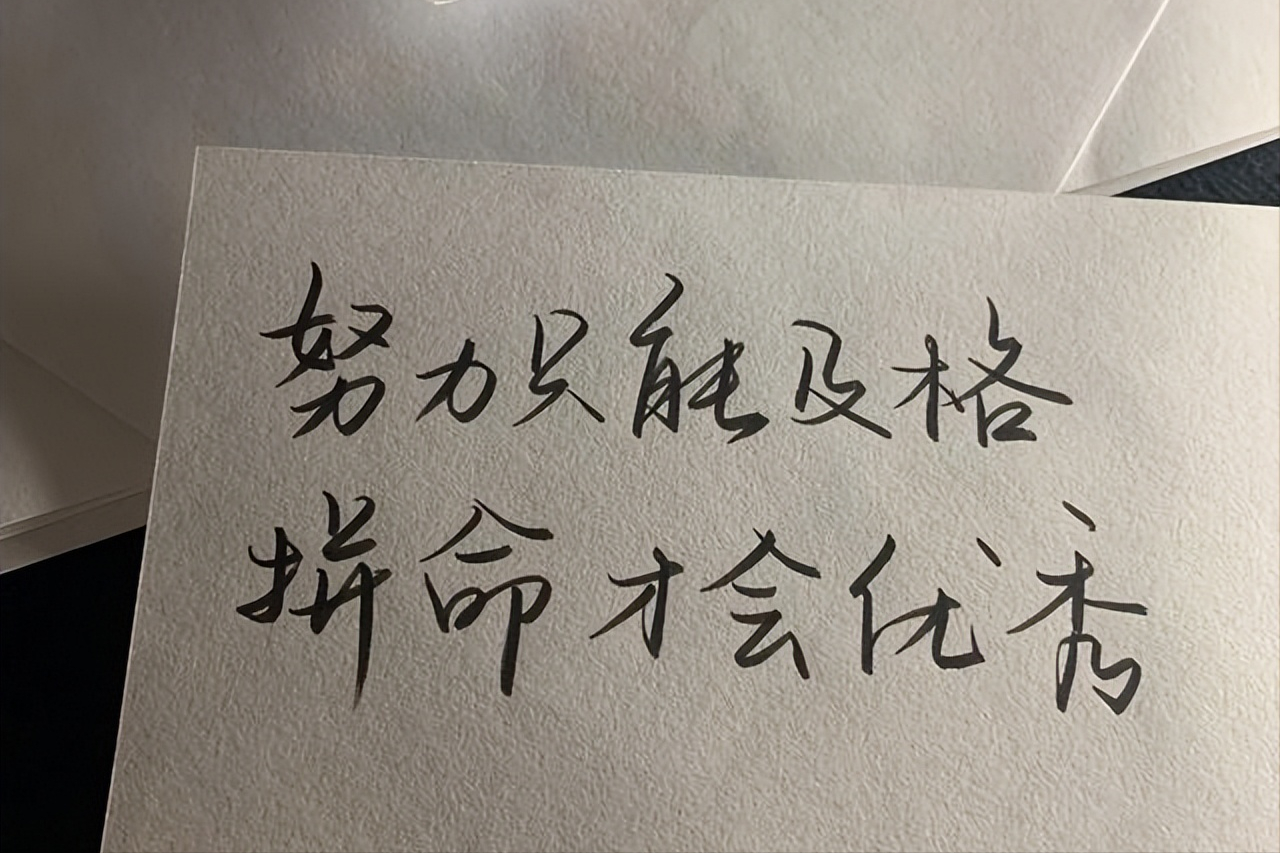 努力只能及格
拼命才会优秀